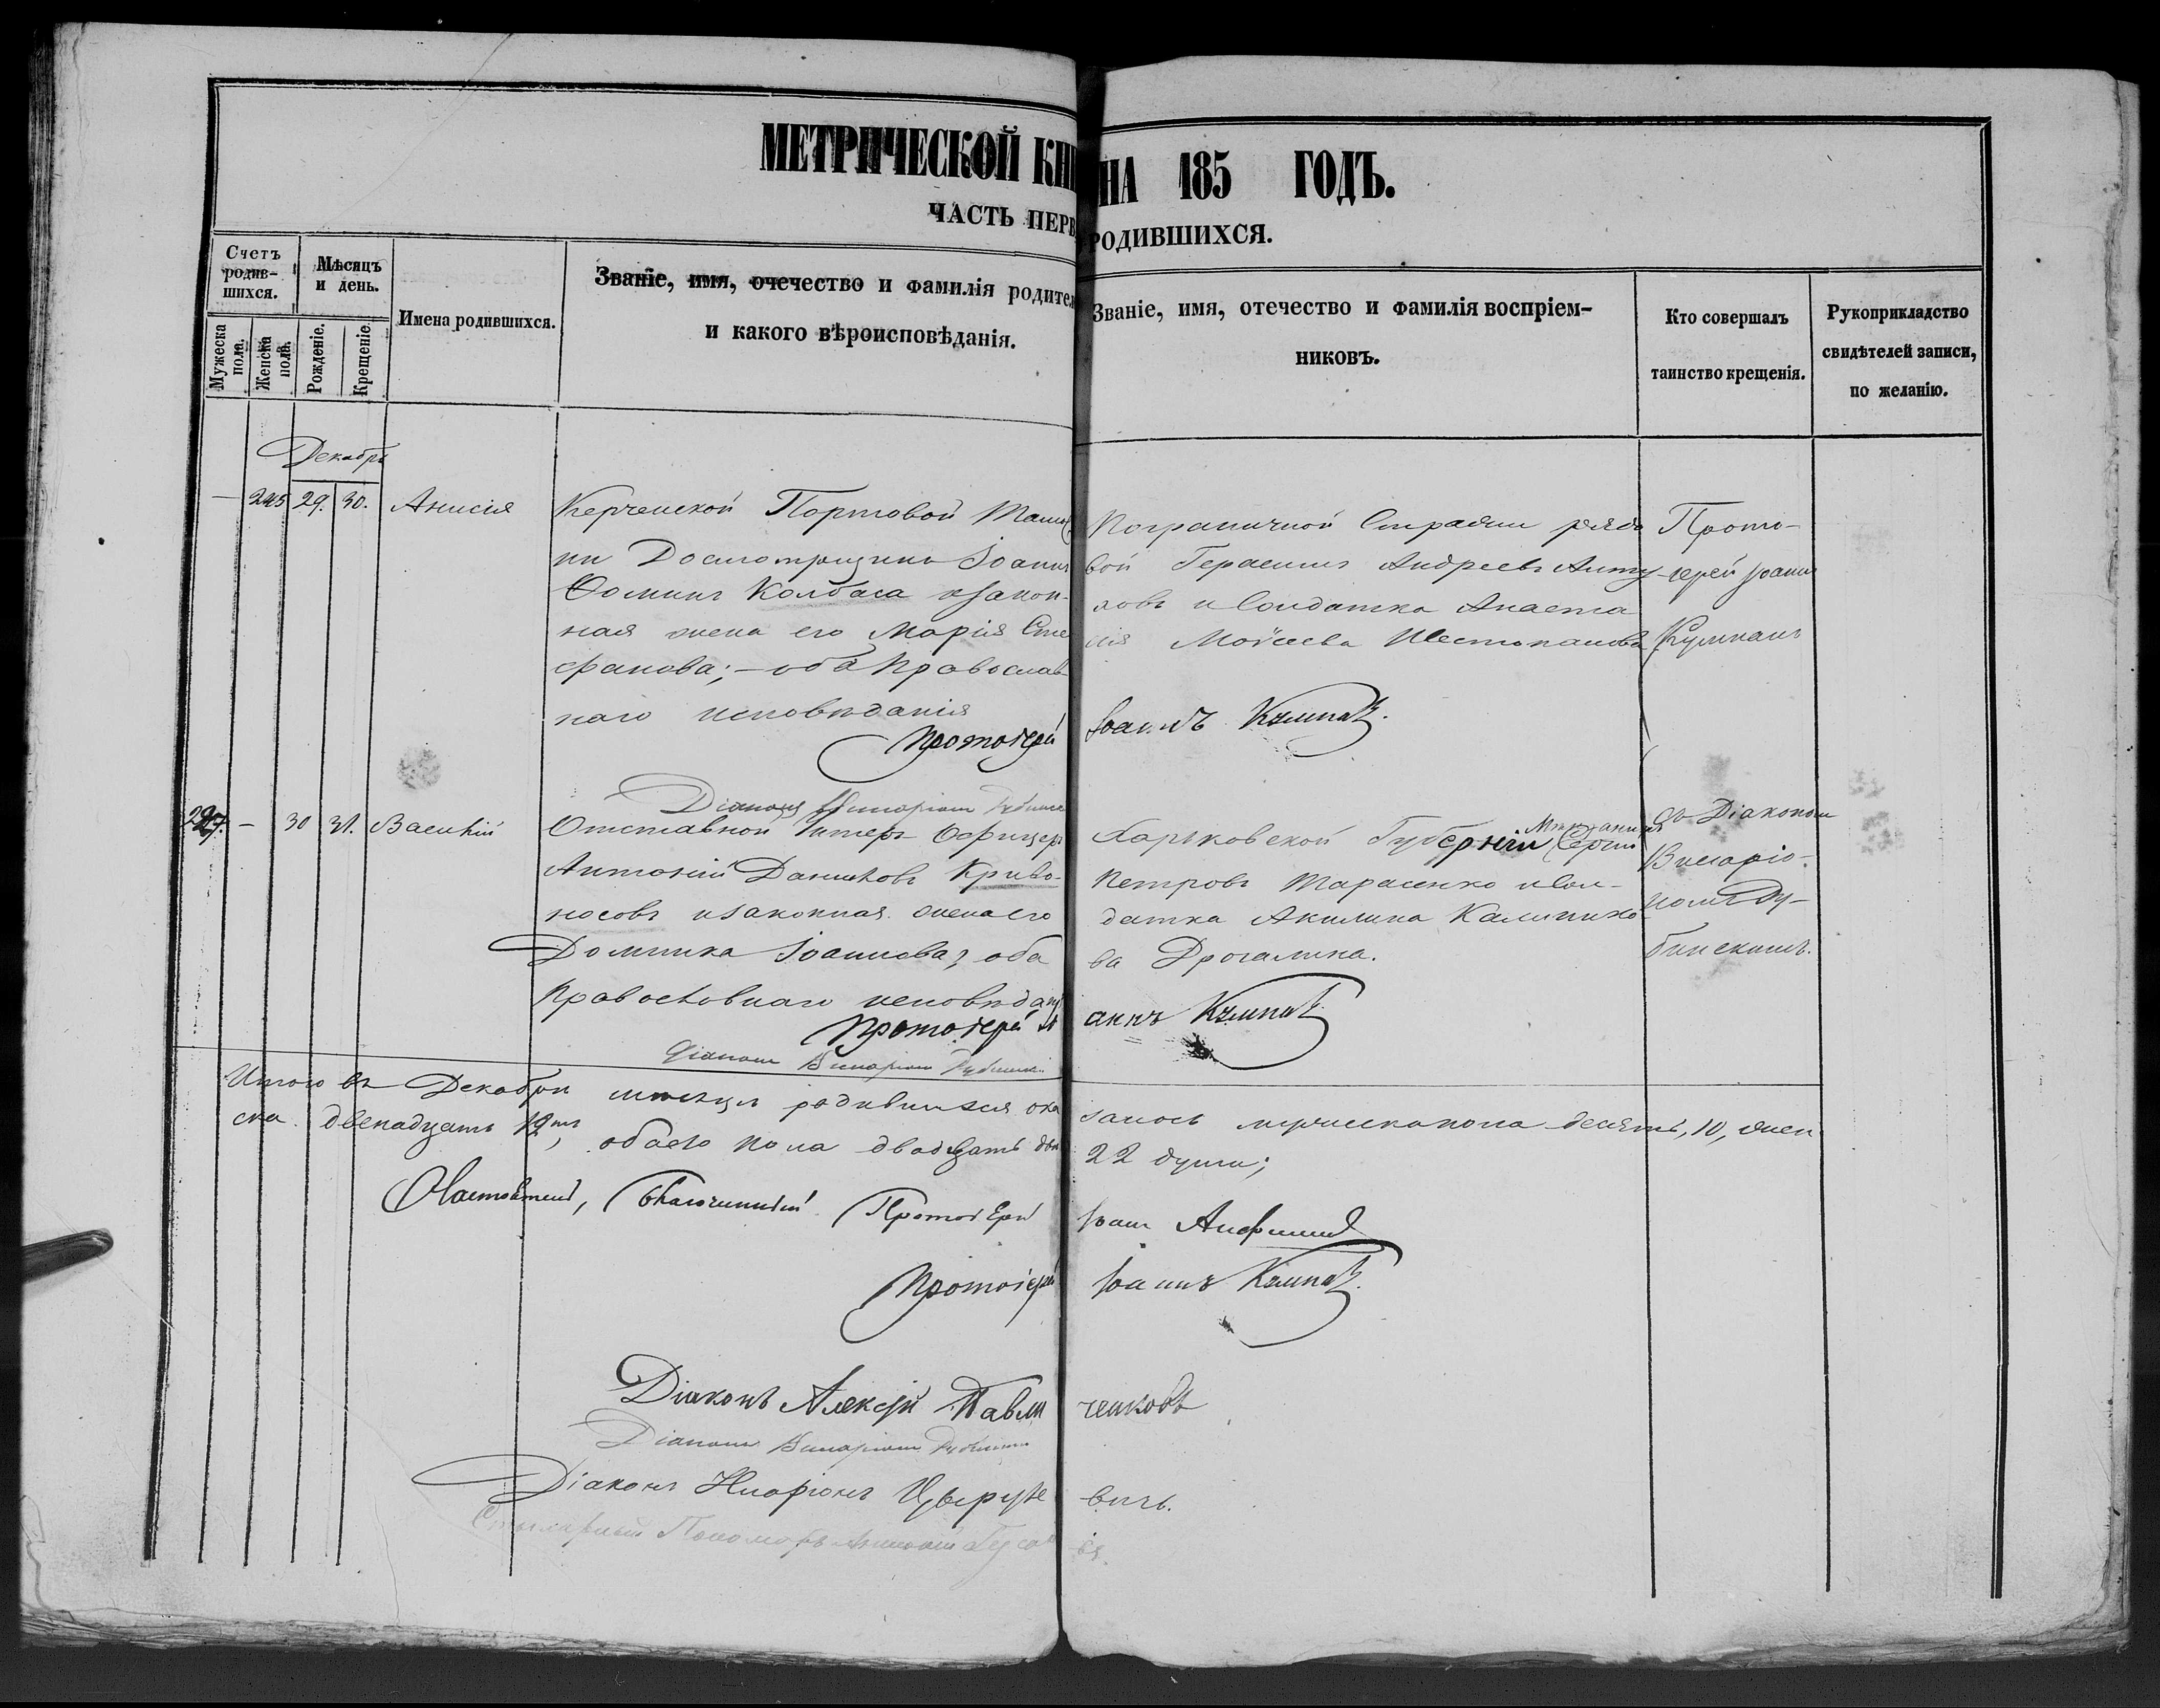 МЕТРИЧЕСКОЙ КНИ НА 185 ГОДЪ.
ЧАСТЬ ПЕРВ РОДИВШИХСЯ.
Счетъ родив-шихся.
Мужеска пола.
Женска пола.
Мѣсяцъ и день.
Рожденіе.
Крещеніе.
Имена родившихся.
Званіе, имя, очечество и фамилія родител
и какого вѣроисповѣданія.
Званіе, имя, отечество и фамилія воспріем-
никовъ.
Кто совершалъ
таинство крещенія.
Рукоприкладство
свидѣтелей записи,
по желанію.
Декабрь
— 245 29. 30. Анисія
Керченской Портовой Тамож
ни Досмотрщикъ Іоаннъ
Ѳоминъ Колбаса и закон-
ная жена его Марія Сте
фанова; – оба Православ
наго исповѣданія
Пограничной Стражи рядо
вой Герасимъ Андреевъ
и Солдатка Анаста
сія Моисеева
Прото-
іерей Іоаннъ
Кумпанъ
Протоіерей Іоаннъ Кумпанъ.
Діаконъ
227. — 30 31. Василій
Отставной Унтеръ Офицеръ
Антоній Даниловъ Криво-
носовъ и законная жена его
Домника Іоаннова, оба
Православнаго исповѣдан
Харьковской Губерніи Мѣщанинъ Сергій
Петровъ Тарасенко и Сол-
датка Акилина Калинико
ва Дрогалина.
съ Діакономъ
Виссаріо-
номъ Ду-
бинскимъ.
Протоіерей Іоаннъ Кумпанъ
Діаконъ Виссаріонъ Дубинскій
Итого въ Декабрѣ мѣсяцѣ родившихся ока залось мужеска пола десять, 10, жен
ска двенадцать 12ть, обаего пола двадцать двѣ 22 души;
Настоятель, Благочинный Протоіерей Іоаннъ
Протоіерей Іоаннъ Кумпанъ.
Діаконъ Алексѣй Павли ченковъ
Діаконъ Виссаріонъ Дубинскій
Діаконъ Иларіонъ вичъ.
Пономарь